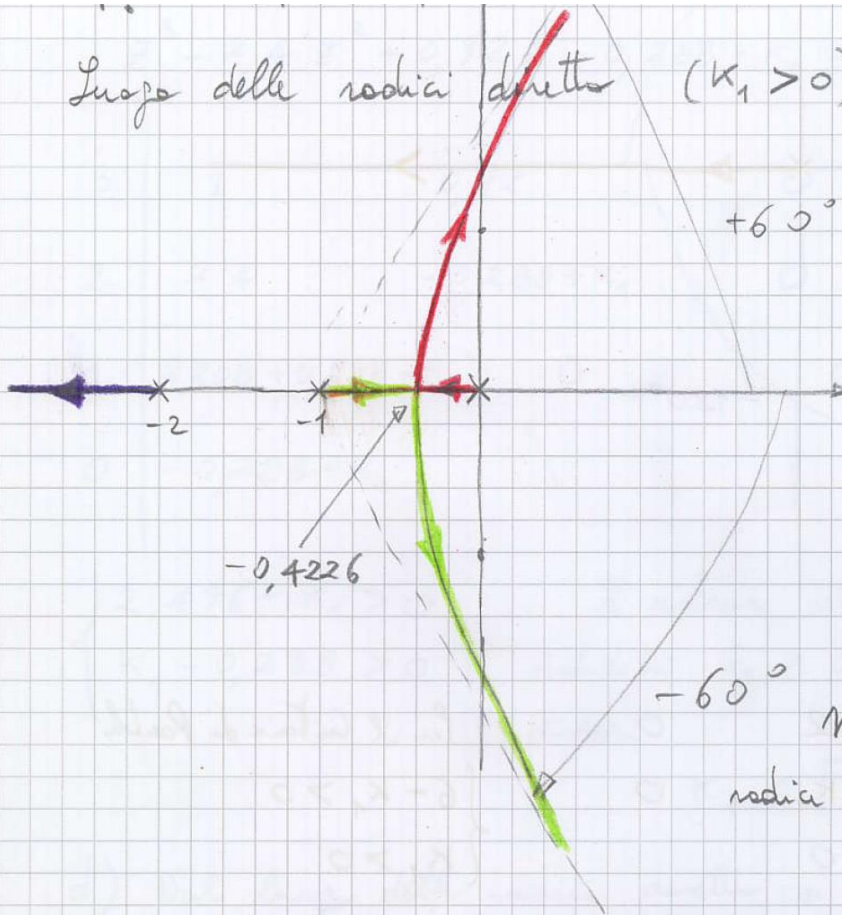 Luogo delle radici diretto (K₁ > 0)
+60°
-2
-1
-0,4226
-60°
radici